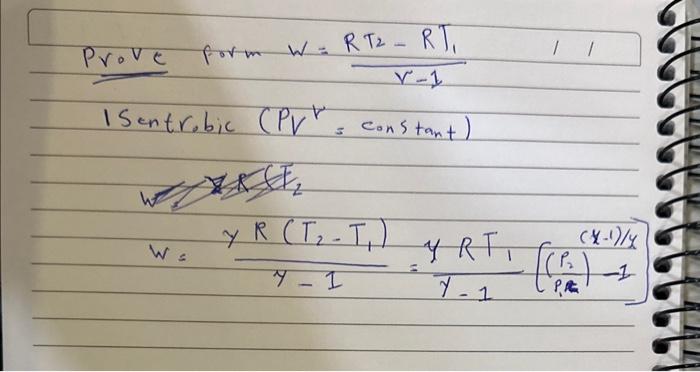 Prove form W = RT2 - RT1 / γ-1
ISentrobic (PV^γ = constant)
W = γ R (T2 - T1) / γ - 1 = γ R T1 / γ - 1 [(P2/P1)^(γ-1)/γ - 1]